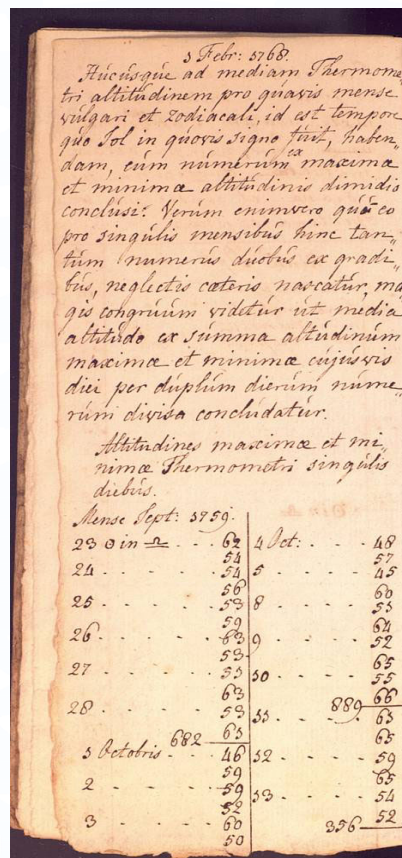 1 Febr: 1768.
Hucusque ad mediam Thermome„
tri altitudinem pro quavis mense
vulgari et zodiacali, id est tempore
quo Sol in quovis signo fuit, haben„
dam, eum numerum ex maximæ
et minimæ altitudinis dimidio
conclusi: Verum enimvero quia eo
pro singulis mensibus hinc tan„
tum numerus duobus ex gradi„
bus, neglectis cæteris nascatur, ma„
gis congruum videtur ut media
altitudo ex summa altitudinum
maximæ et minimæ cujusvis
diei per duplum dierum nume„
rum divisa concludatur.
Altitudines maximæ et mi„
nimæ Thermometri singulis
diebus.
Mense Sept: 1759.
23 ☉ in ♎ . . . 62
54
24 . . . . 54
56
25 . . . . 53
59
26 . . . . 63
53
27 . . . . 51
63
28 . . . . 53
682 61
1 Octobris . . . 46
59
2 . . . . 59
52
3 . . . . 60
50
4 Oct: . . . 48
57
5 . . . . 45
60
8 . . . . 51
64
9 . . . . 52
65
10 . . . . 55
889 66
11 . . . . 61
65
12 . . . . 59
65
13 . . . . 54
356 52